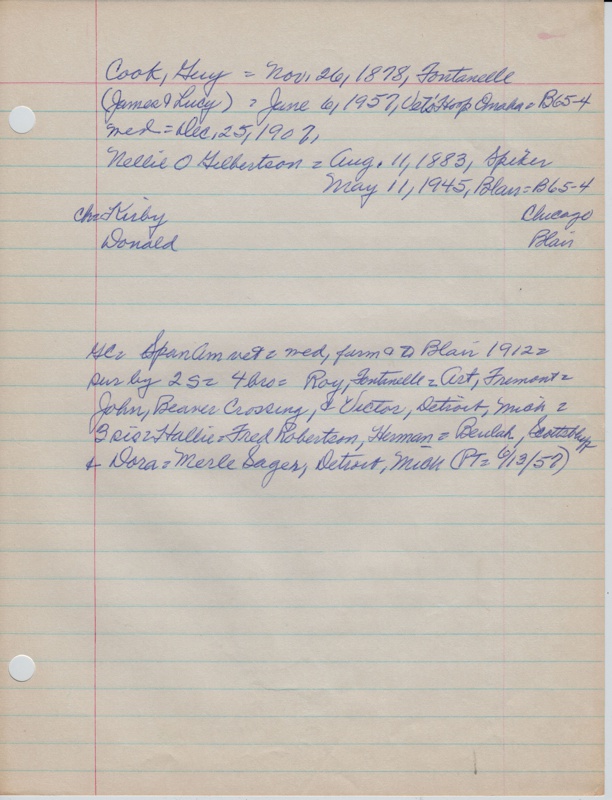 Cook, Guy = Nov. 26, 1878, Fontanelle
(James & Lucy) = June 6, 1957, Vet's Hosp Omaha = B65-4
med = Dec, 25, 1907,
Nellie O Gilbertson = Aug. 11, 1883, Spiker
May 11, 1945, Blair = B65-4
ch = Kirby Chicago
Donald Blair
GC = Span Am vet = med, farm & to Blair 1912 =
sur by 2 s = 4 bros = Roy, Fontanelle = Art, Fremont =
John, Beaver Crossing, & Victor, Detroit, Mich =
3 sis = Hallie = Fred Robertson, Herman = Beulah, Scottsbluff
& Dora = Merle Sager, Detroit, Mich (PT = 6/13/57)